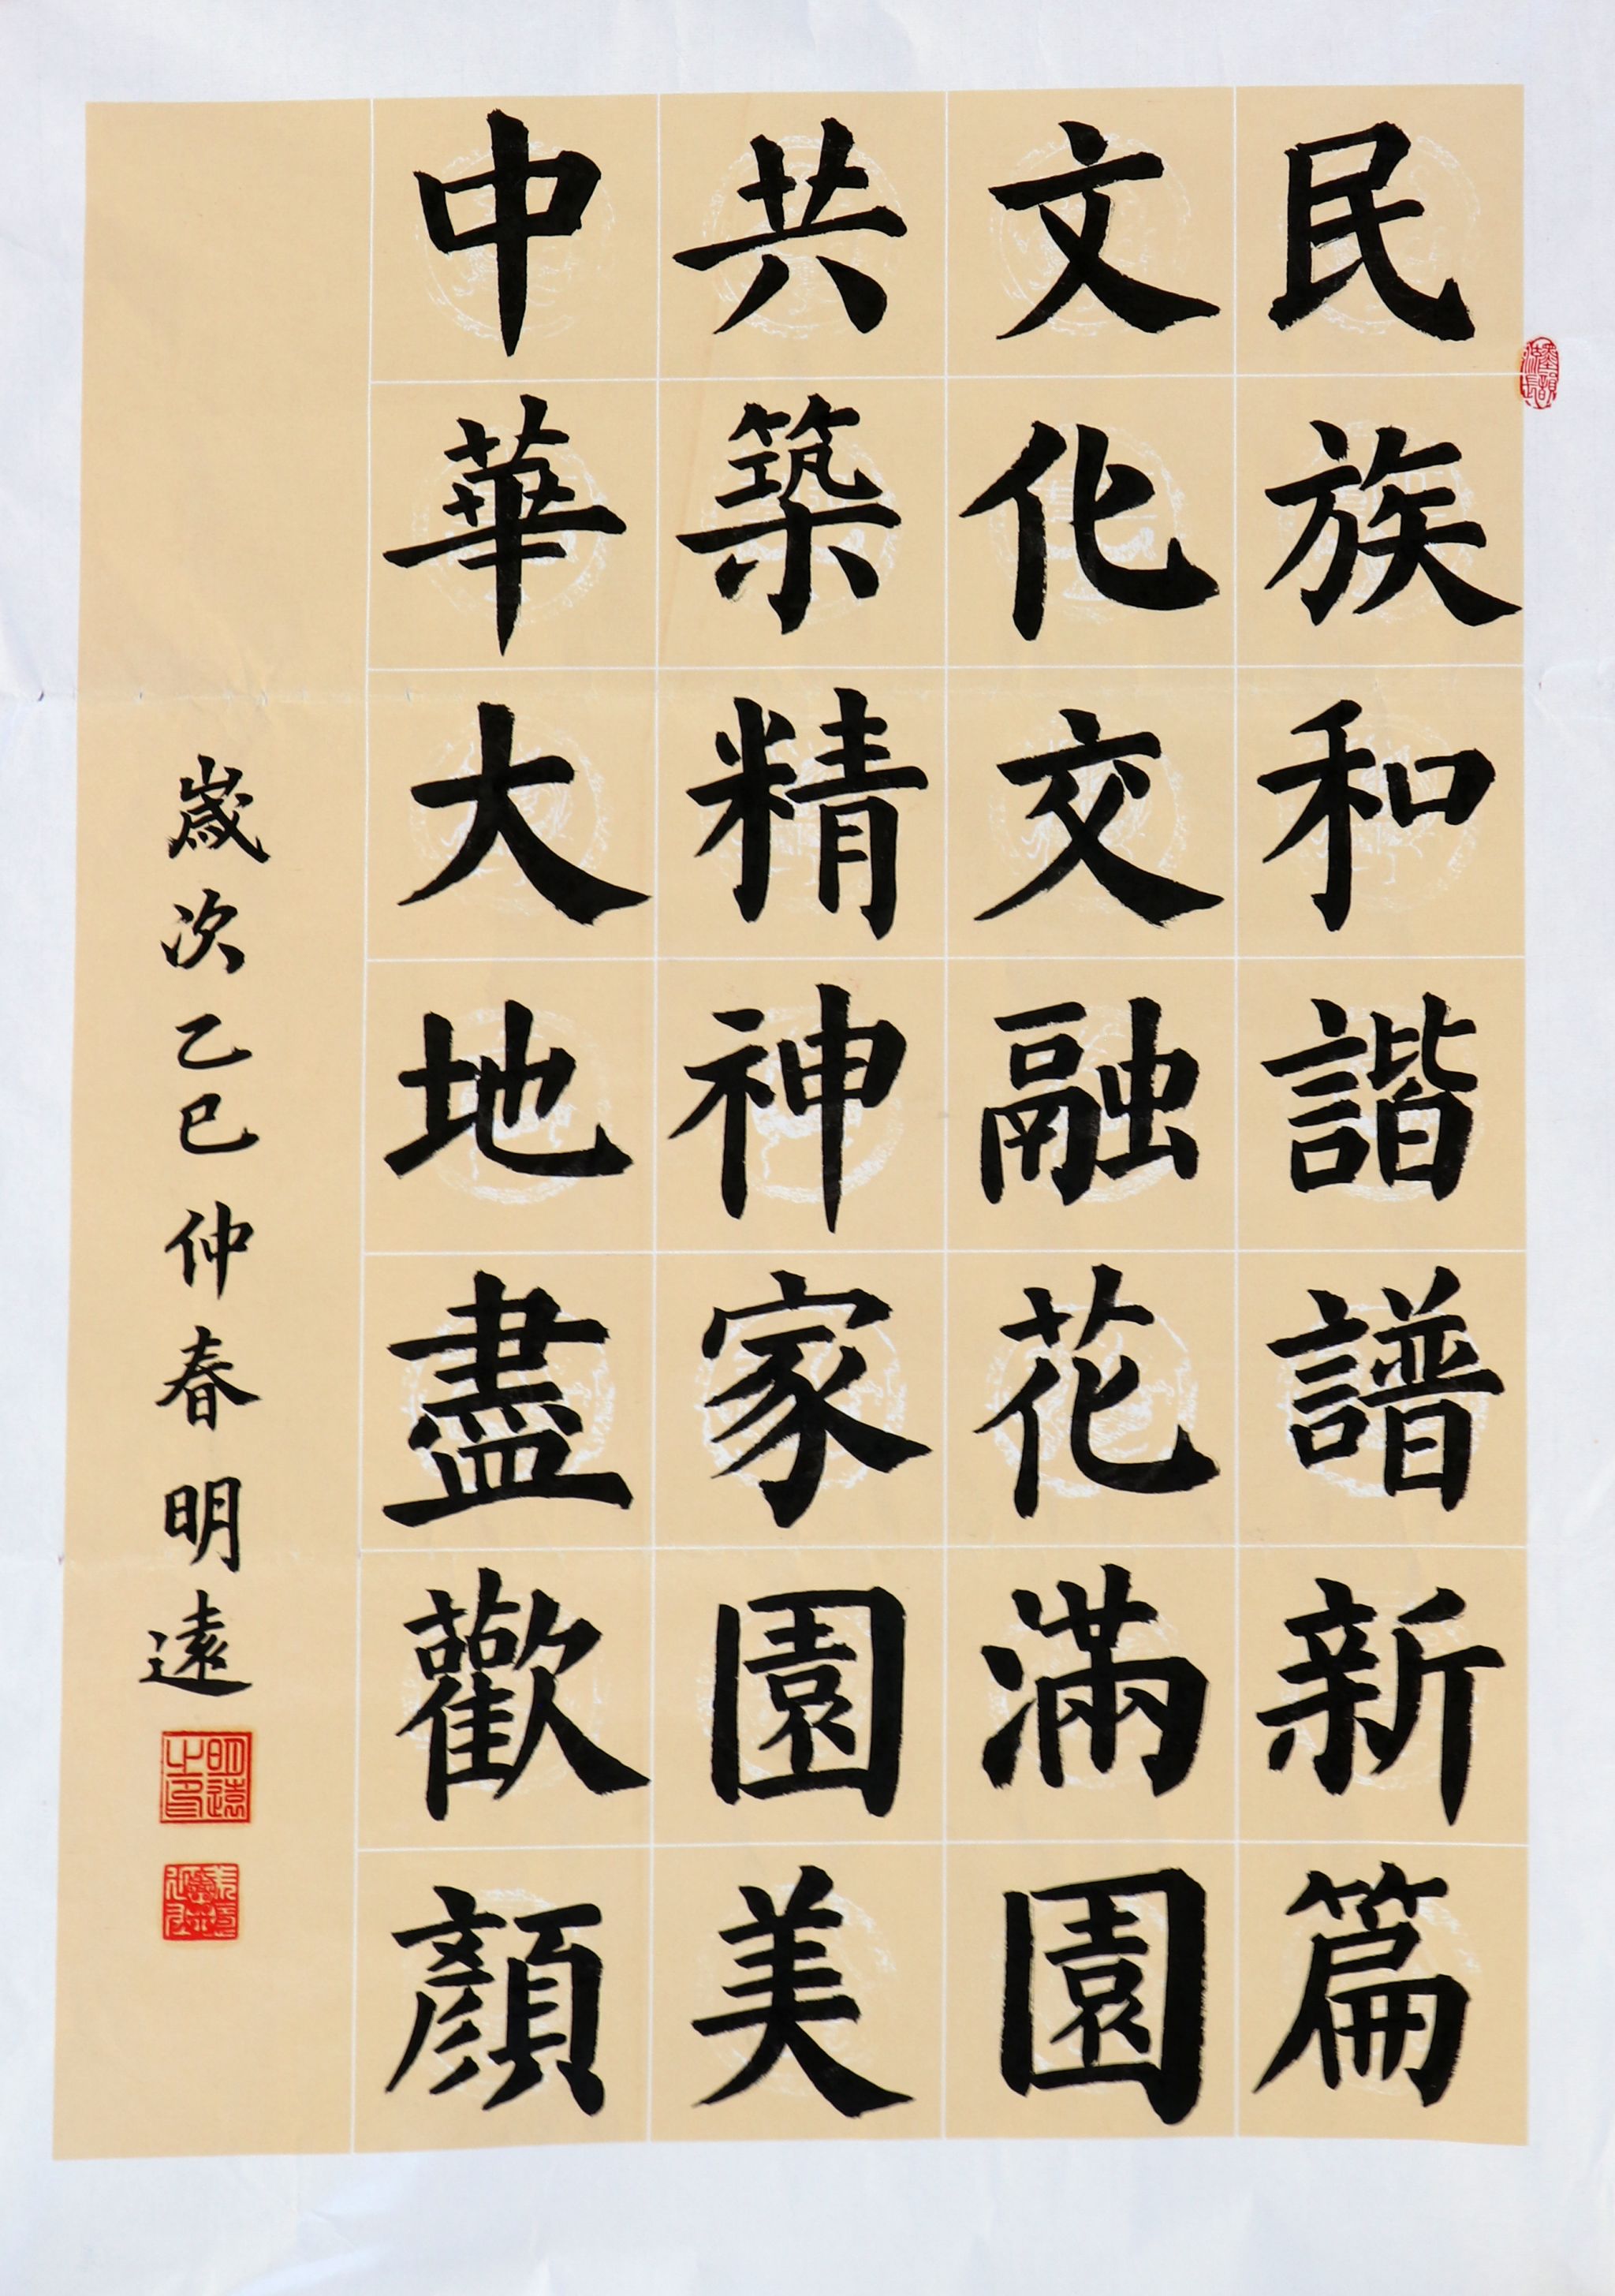 民族和諧譜新篇
文化交融花滿園
共築精神家園美
中華大地盡歡顏
歲次乙巳仲春明遠
明遠之印